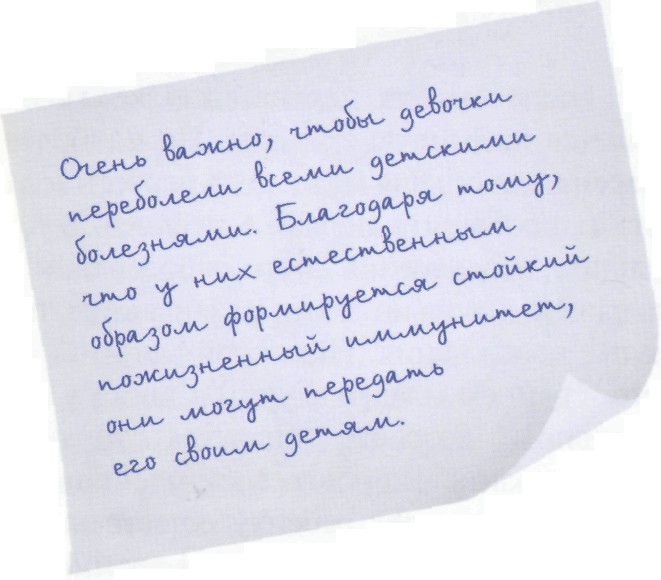 Очень важно, чтобы девочки
переболели всеми детскими
болезнями. Благодаря тому,
что у них естественным
образом формируется стойкий
пожизненный иммунитет,
они могут передать
его своим детям.